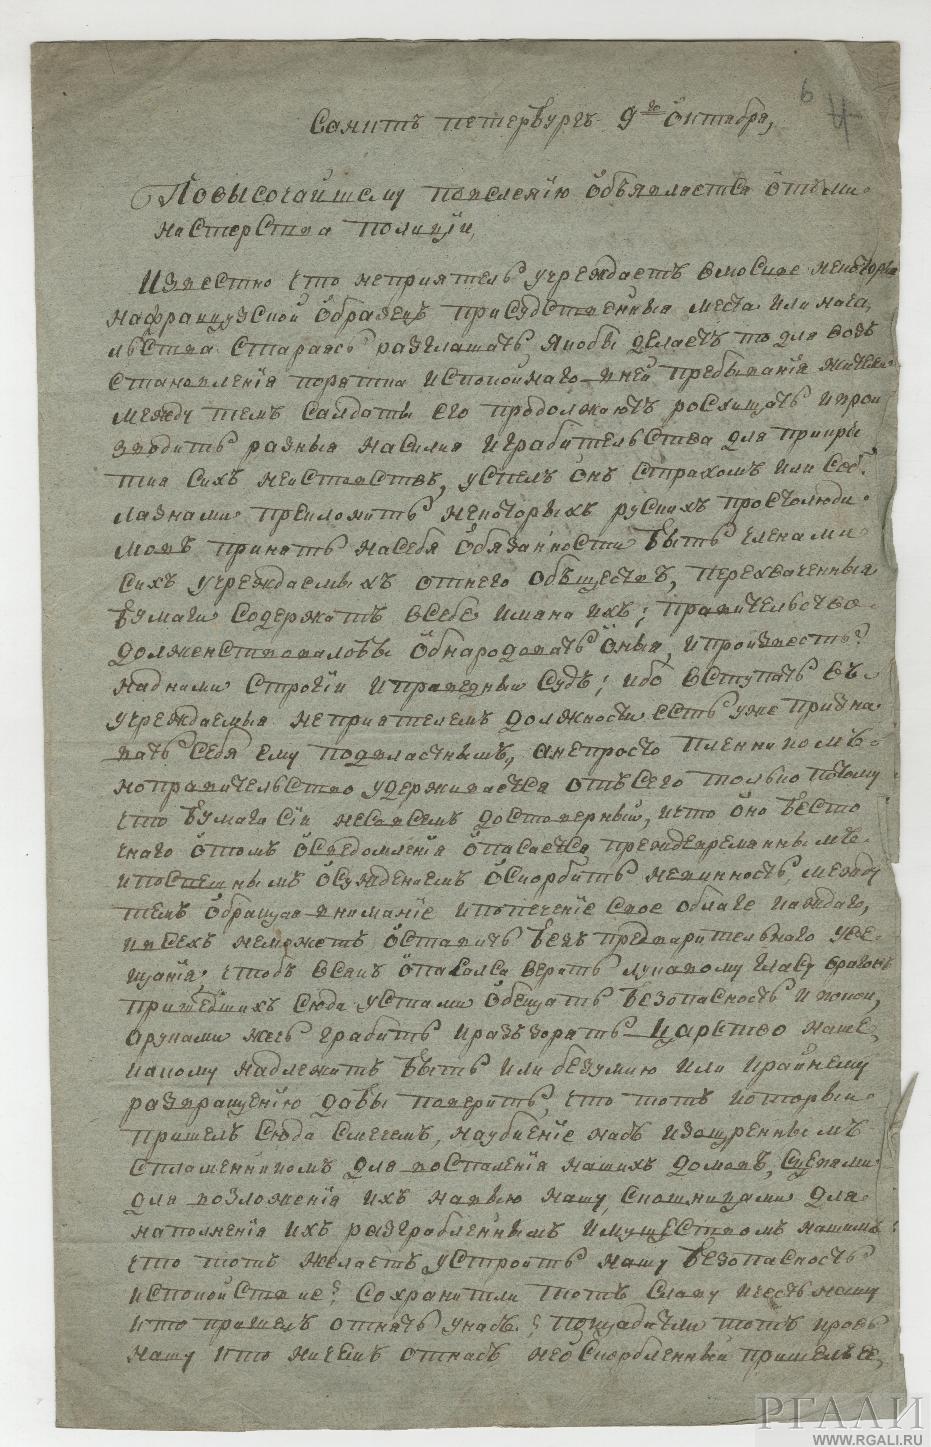 6 4
Санктъ петербургъ 9го октября,
Повысочайшему повелению объявляется отъми
нистерства полиции,
Известно что неприятель учреждаетъ вмоскве некоторыя
нафранцузской образецъ присудственныя места или нача,
льства стараясь разглашать якобы делаетъ то для возъ
становления порятка испокойнаго вней пребывания жителей
между темъ салдаты его продолжаютъ росхищать ипрои
зводить разныя насилия играбительства для прикры
тия сихъ неистовствъ, успелъ онъ страхомъ или собъ
лазнами преклонить некоторыхъ рускихъ простолюди
мовъ принять насебя обязанности быть членами
сихъ учреждаемыхъ отнего обществъ, перехваченныя
бумаги содержатъ всебе имяна ихъ; правительство
долженствовалобы обнародовать оныя, ипроизвесть
надними строгий иправедный судъ; ибо вступать въ
учреждаемыя неприятелемъ должности есть уже призна
вать себя ему подвластнымъ, анепросто пленникомъ
ноправительство удерживается отъсего только потому
что бумаги сии несовсемъ достоверныи, ичто оно безто
чнаго отомъ осведомления опасается преждевременнымъ
ипоспешнымъ осуждениемъ оскорбить невинность, между
темъ обращая внимание ипопечение свое облаге каждаго,
ивсехъ неможетъ оставить безъ предварительнаго уве
щания; чтобъ всякъ опасался верить лукавому гласу враговъ
пришедшихъ сюда устами обещать безопасность ипокой,
аруками жечь грабить иразъзорять царство наше,
какому надлежитъ быть или безумию или крайнему
развращению дабы поверить, что тотъ который
пришелъ сюда смечемъ, наубиение насъ изощреннымъ
спламенникомъ для воспаления нашихъ домовъ, сцепями
для возложения ихъ навыю нашу, скошницами для
наполнения ихъ разграбленнымъ имуществомъ нашимъ
что тотъ желаетъ устроить нашу безопасность
испокойствие? сохранитли тотъ славу ичесть нашу
кто пришелъ отнять унасъ? пощадитли тотъ кровь
нашу кто ничемъ отнасъ неоскорбленный пришелъ ее,
РГАЛИ
WWW.RGALI.RU